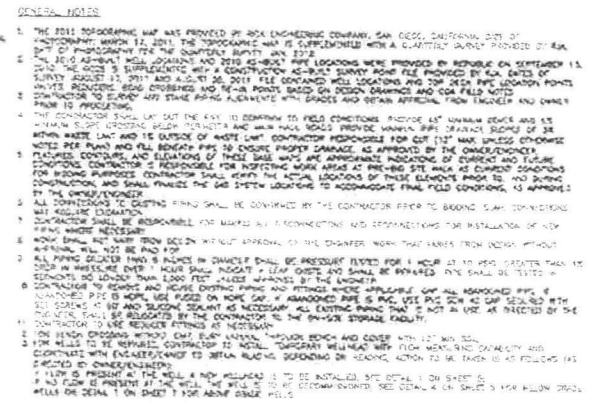 GENERAL NOTES
1. THE 2011 TOPOGRAPHIC MAP WAS PROVIDED BY RICK ENGINEERING COMPANY, SAN DIEGO, CALIFORNIA DATE OF
PHOTOGRAPHY: MARCH 17, 2011. THE TOPOGRAPHIC MAP IS SUPPLEMENTED WITH A QUARTERLY SURVEY PROVIDED BY
DATE OF PHOTOGRAPHY FOR THE QUARTERLY SURVEY JAN. 2012
2. THE 2010 AS-BUILT WELL LOCATIONS AND 2010 AS-BUILT PIPE LOCATIONS WERE PROVIDED BY REPUBLIC ON SEPTEMBER 13,
IS SUPPLEMENTED WITH A CONSTRUCTION AS-BUILT SURVEY POINT FILE PROVIDED BY DATES OF
SURVEY AUGUST AND AUGUST 2011 FILE CONTAINED WELL LOCATIONS AND PIPE LOCATION POINTS
VALVES, REDUCERS, ROAD CROSSINGS AND TIE-IN POINTS BASED ON DESIGN DRAWINGS AND CQA FIELD NOTES
3. CONTRACTOR TO SURVEY AND STAKE PIPING ALIGNMENTS WITH GRADES AND OBTAIN APPROVAL FROM ENGINEER AND OWNER
PRIOR TO PROCEEDING.
4. THE CONTRACTOR SHALL LAY OUT THE PIPE TO CONFORM TO FIELD CONDITIONS. PROVIDE MINIMUM COVER AND
MINIMUM SLOPE CROSSING BELOW PERIMETER AND MAIN HAUL ROADS PROVIDE MINIMUM PIPE DRAINAGE SLOPES OF 3%
WITHIN WASTE LIMIT AND 1% OUTSIDE OF WASTE LIMIT. CONTRACTOR RESPONSIBLE FOR CUT MAX UNLESS OTHERWISE
NOTED PER PLAN) AND FILL BENEATH PIPE TO ENSURE PROPER DRAINAGE AS APPROVED BY THE OWNER/ENGINEER
5. FEATURES, CONTOURS, AND ELEVATIONS OF THESE BASE MAPS ARE APPROXIMATE INDICATIONS OF CURRENT AND FUTURE
CONDITIONS. CONTRACTOR IS RESPONSIBLE FOR INSPECTING WORK AREAS AT PRE-BID SITE WALK AS CURRENT CONDITIONS
FOR BIDDING PURPOSES. CONTRACTOR SHALL VERIFY THE ACTUAL LOCATIONS OF THESE ELEMENTS PRIOR TO, AND DURING
CONSTRUCTION, AND SHALL FINALIZE THE GAS SYSTEM LOCATIONS TO ACCOMMODATE FINAL FIELD CONDITIONS, AS APPROVED
BY THE OWNER/ENGINEER
6. ALL CONNECTIONS TO EXISTING PIPING SHALL BE CONFIRMED BY THE CONTRACTOR PRIOR TO BIDDING. SOME CONNECTIONS
MAY REQUIRE EXCAVATION
7. CONTRACTOR SHALL BE RESPONSIBLE FOR MAKING ALL DISCONNECTIONS AND RECONNECTIONS FOR INSTALLATION OF NEW
PIPING WHERE NECESSARY
8. WORK SHALL NOT VARY FROM DESIGN WITHOUT APPROVAL OF THE ENGINEER WORK THAT VARIES FROM DESIGN WITHOUT
APPROVAL WILL NOT BE PAID
9. ALL PIPING GREATER THAN 6 INCHES IN DIAMETER SHALL BE PRESSURE TESTED FOR 1 HOUR AT 10 PSIG. GREATER THAN 1%
DROP IN PRESSURE OVER 1 HOUR SHALL INDICATE A LEAK EXISTS AND SHALL BE REPAIRED. PIPE SHALL BE TESTED IN
SEGMENTS NO LONGER THAN 2,000 FEET UNLESS APPROVED BY THE ENGINEER
10. CONTRACTOR TO REMOVE AND REUSE EXISTING PIPING AND FITTINGS WHERE APPLICABLE. CAP ALL ABANDONED PIPE. IF
ABANDONED PIPE IS HDPE, USE FUSED ON HDPE CAP. IF ABANDONED PIPE IS PVC, USE PVC CAP SECURED WITH
SET SCREWS AND SILICONE SEALANT AS NECESSARY. ALL EXISTING PIPING THAT IS NOT IN USE, AS DIRECTED BY THE
ENGINEER, SHALL BE RELOCATED BY THE CONTRACTOR TO THE ON-SITE STORAGE FACILITY.
11. CONTRACTOR TO USE REDUCER FITTINGS AS NECESSARY
12. FOR BENCH CROSSING WITHOUT BURY LATERAL THROUGH BENCH AND COVER WITH SOIL
13. FOR WELLS TO BE REPAIRED, CONTRACTOR TO INSTALL "TEMPORARY WELLHEAD" WITH FLOW MEASURING CAPACITY AND
COORDINATE WITH ENGINEER/OWNER TO OBTAIN READING. DEPENDING ON READING, ACTION TO BE TAKEN IS AS FOLLOWS (AS
DIRECTED BY OWNER/ENGINEER):
IF FLOW IS PRESENT AT THE WELL A NEW WELLHEAD IS TO BE INSTALLED. SEE DETAIL 1 ON SHEET 6.
IF NO FLOW IS PRESENT AT THE WELL, THE WELL IS TO BE DECOMMISSIONED. SEE DETAIL ON SHEET FOR BELOW GRADE
WELLS OR DETAIL 1 ON SHEET 7 FOR ABOVE GRADE WELLS